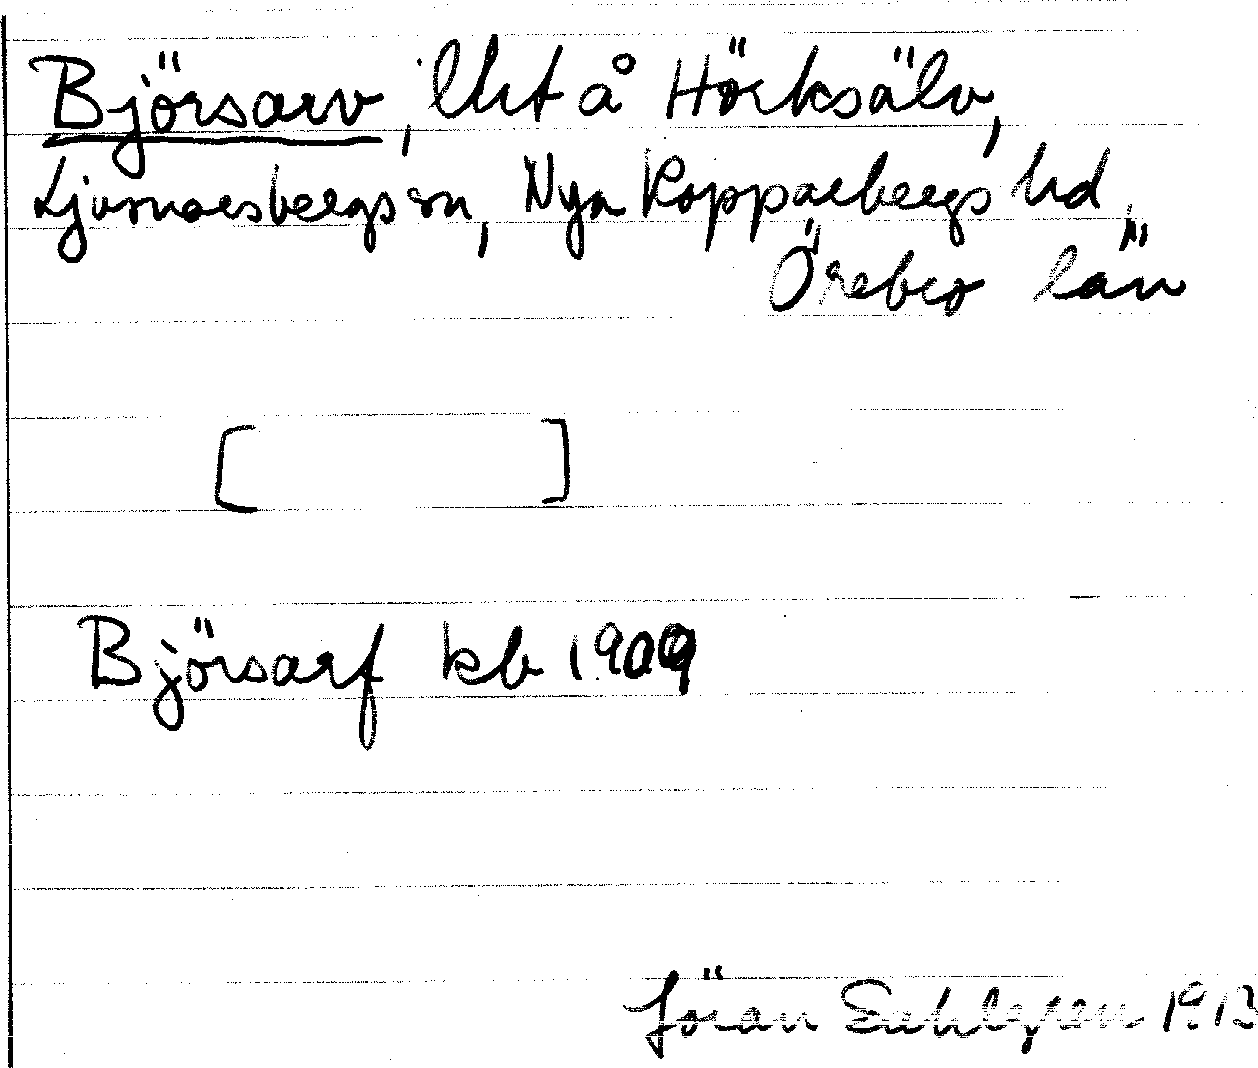 Björsarv, lht å Hörksälv,
Ljusnarsbergs sn, Nya Kopparbergs hd,
Örebro län
[ ]
Björsarf kb 1909
Jöran Sahlgren 1913